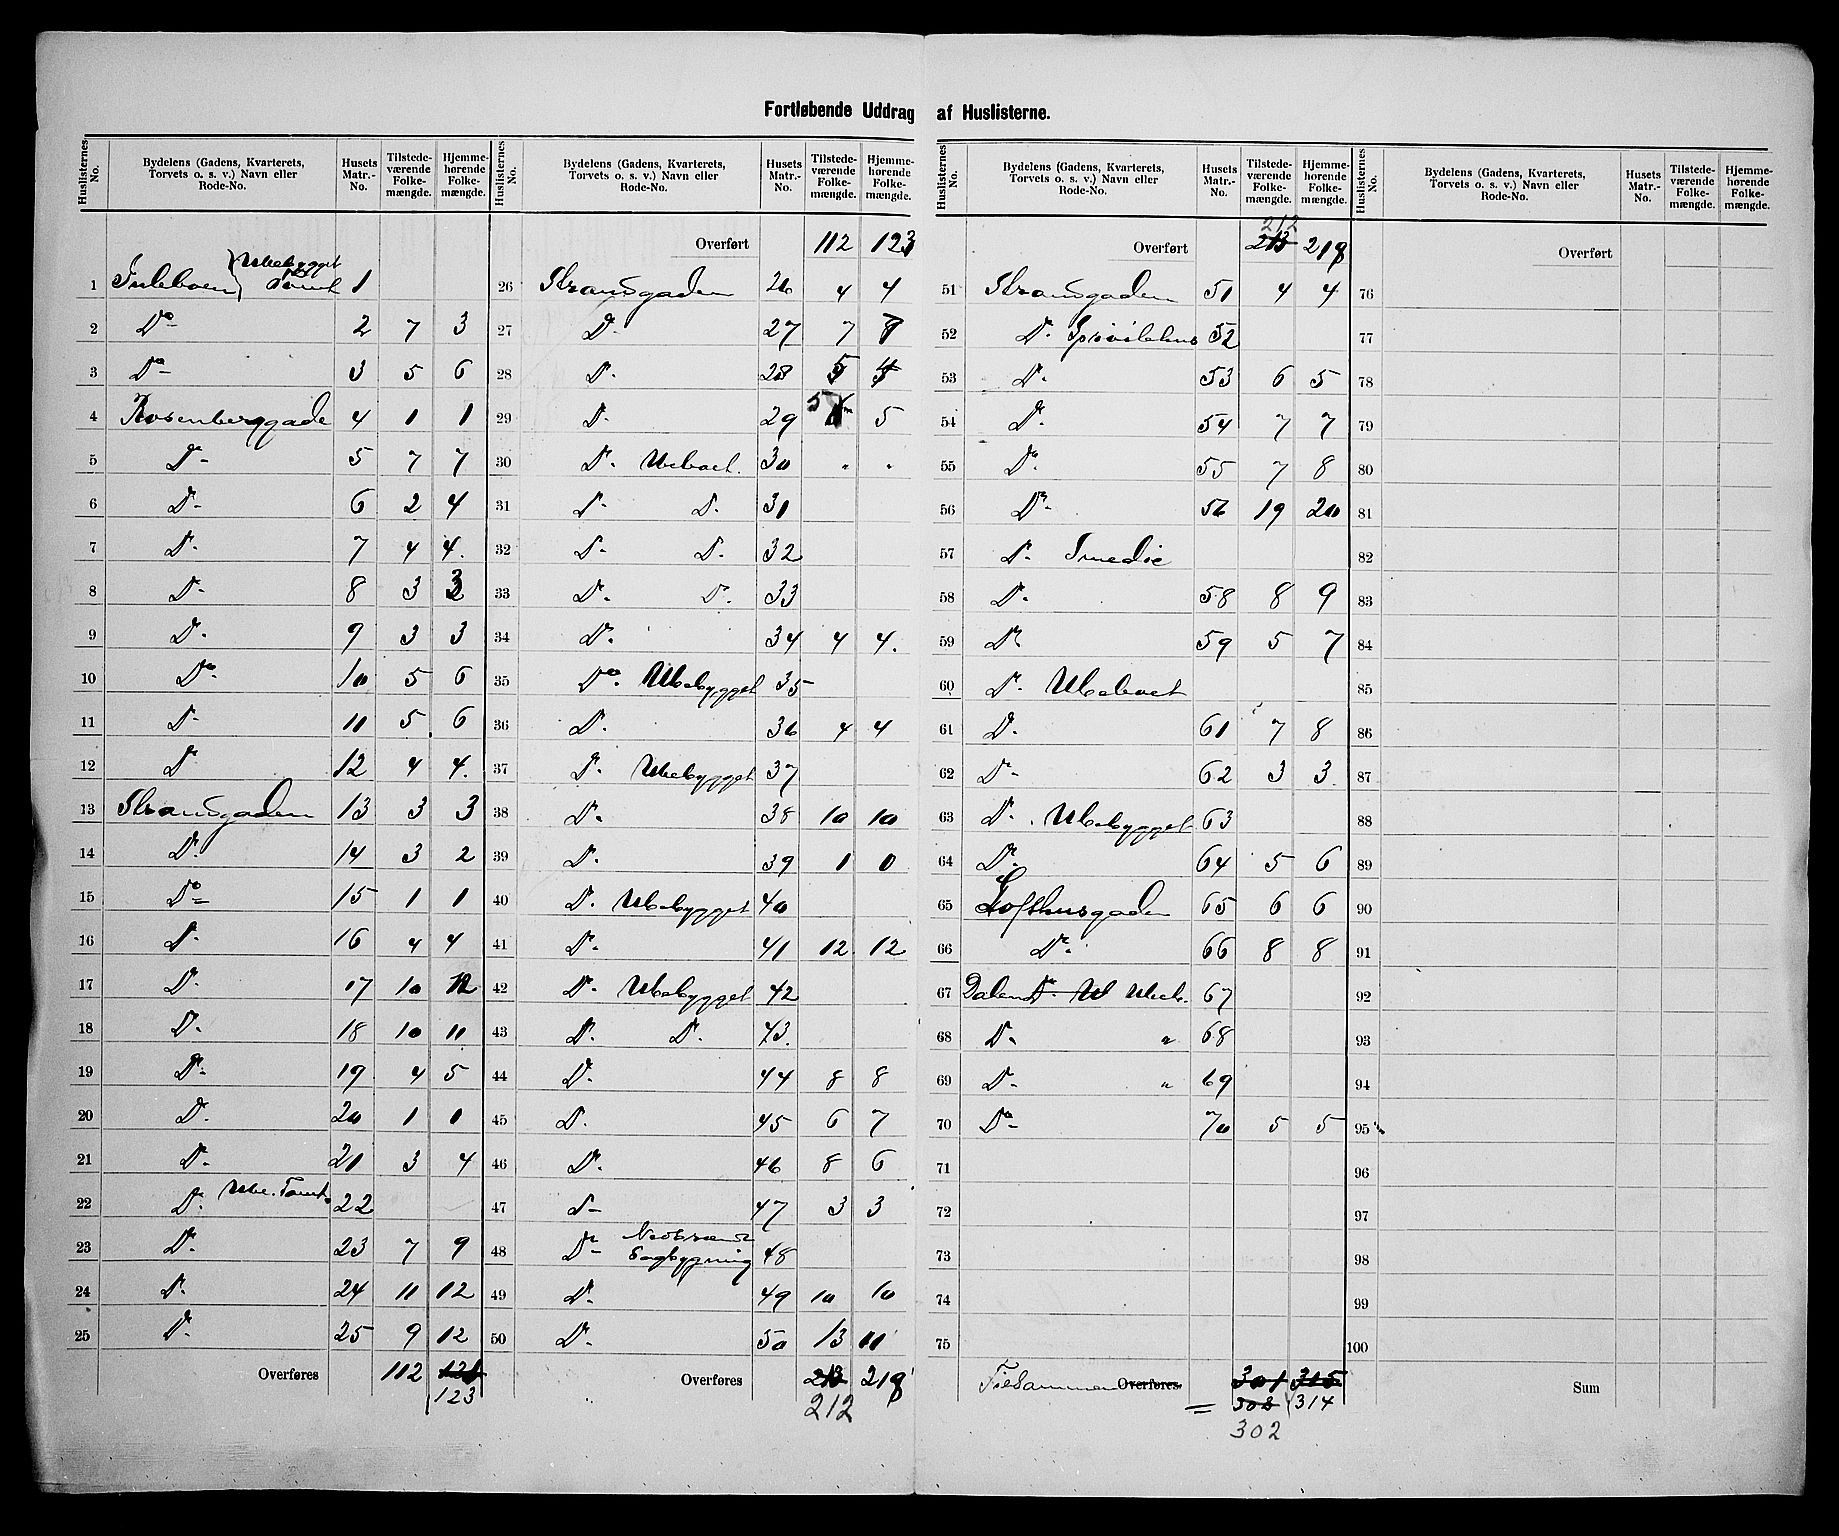 Fortløbende Uddrag af Huslisterne.
Huslisternes No. | Bydelens (Gadens, Kvarterets, Torvets o. s. v.) Navn eller Rode-No. | Husets Matr.-No. | Tilstedeværende Folkemængde. | Hjemmehørende Folkemængde.
1 Ubebygget Tomt 1
2 Do 2 7 3
3 Do 3 5 6
4 Rosenberggade 4 1 1
5 Do 5 7 7
6 Do 6 2 4
7 Do 7 4 4.
8 Do 8 3 3
9 Do 9 3 3
10 Do 10 5 6
11 Do 11 5 6
12 Do 12 4 4.
13 Strandgaden 13 3 3
14 Do 14 3 2
15 Do 15 1 1
16 Do 16 4 4
17 Do 17 10 12
18 Do 18 10 11
19 Do 19 4 5
20 Do 20 1 1
21 Do 21 3 4
22 Do Ube. Tomt 22
23 Do 23 7 9
24 Do 24 11 12
25 Do 25 9 12
Overføres 112 121
123
Huslisternes No. | Bydelens (Gadens, Kvarterets, Torvets o. s. v.) Navn eller Rode-No. | Husets Matr.-No. | Tilstedeværende Folkemængde. | Hjemmehørende Folkemængde.
Overført 112 123
26 Strandgaden 26 4 4
27 Do 27 7
28 Do 28 5
29 Do 29 5 5
30 Do Ubeboet. 30 " "
31 Do Do 31
32 Do Do 32
33 Do Do 33
34 Do 34 4 4.
35 Do Ubebygget 35
36 Do 36 4 4
37 Do Ubebygget 37
38 Do 38 10 10
39 Do 39 1 0
40 Do Ubebygget 40
41 Do 41 12 12
42 Do Ubebygget 42
43 Do Do 43.
44 Do 44 8 8
45 Do 45 6 7
46 Do 46 8 6
47 Do 47 3 3
48 Do 48
49 Do 49 10 10
50 Do 50 13 11
Overføres 213 218
212
Huslisternes No. | Bydelens (Gadens, Kvarterets, Torvets o. s. v.) Navn eller Rode-No. | Husets Matr.-No. | Tilstedeværende Folkemængde. | Hjemmehørende Folkemængde.
212
Overført 213 218
51 Strandgaden 51 4 4
52 Do 52
53 Do 53 6 5
54 Do 54 7 7
55 Do 55 7 8
56 Do 56 19 20
57 Do Smedie
58 Do 58 8 9
59 Do 59 5 7
60 Do Ubeboet
61 Do 61 7 8
62 Do 62 3 3.
63 Do Ubebygget 63
64 Do 64 5 6
65 Lofthusgaden 65 6 6
66 Do 66 8 8
67 Dalen Do U Ubeb. 67
68 Do " 68
69 Do " 69
70 Do 70 5 5
71
72
73
74
75
Tilsammen Overføres 301 315
= 303 314
302
Huslisternes No. | Bydelens (Gadens, Kvarterets, Torvets o. s. v.) Navn eller Rode-No. | Husets Matr.-No. | Tilstedeværende Folkemængde. | Hjemmehørende Folkemængde.
Overført
76
77
78
79
80
81
82
83
84
85
86
87
88
89
90
91
92
93
94
95
96
97
98
99
100
Sum